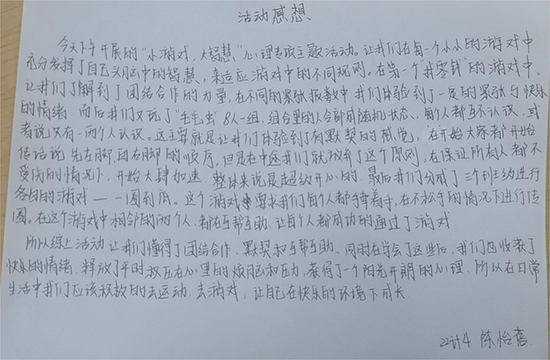 活动感想
今天下午开展的"小游戏,大智慧"心理专项主题活动。让我们在每一个小小的游戏中
充分发挥了自己头脑中的智慧,来适应游戏中的不同规则。在第一个"拼零钱"的游戏中,
让我们了解到了团结合作的力量,在不同的紧张报数中我们体验到了一定的紧张与快乐
的情绪 而后我们又玩了"毛毛虫"8人一组,组合里的人全部用随机状态,每个人都互不认识,或
者说只有一两个人认识。这主要就是让我们体验到了有默契的感觉,在开始大家都开始
传话说 先左脚,再右脚的顺序。但是在中途我们就放弃了这个原则,在保证所有人都不
受伤的情况下,开始大肆加速,整体来说是超级开心的 最后我们分成了三个到三组进行
各自的游戏——一圆到底。这个游戏 要求我们每个人都手牵着手,在不松手的情况下进行传
圈。在这个游戏中相邻的两个人,都在互帮互助,让每个人都成功的通过了游戏
所以综上活动让我们懂得了团结合作,默契和互帮互助。同时在学会了这些后,我们也收获了
快乐的情绪,释放了平时积压在心里的烦恼和压力,获得了一个阳光开朗的心理,所以在日常
生活中我们应该积极的去运动,去游戏,让自己在快乐的环境下成长
22计4 陈怡蓓